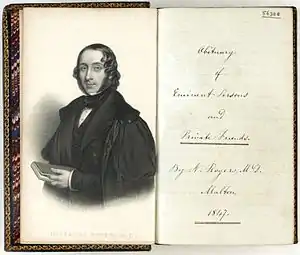 56308
Obituary
of
Eminent Persons
and
Private Friends.
By A. Rogers, M.D.
Malton
1847.